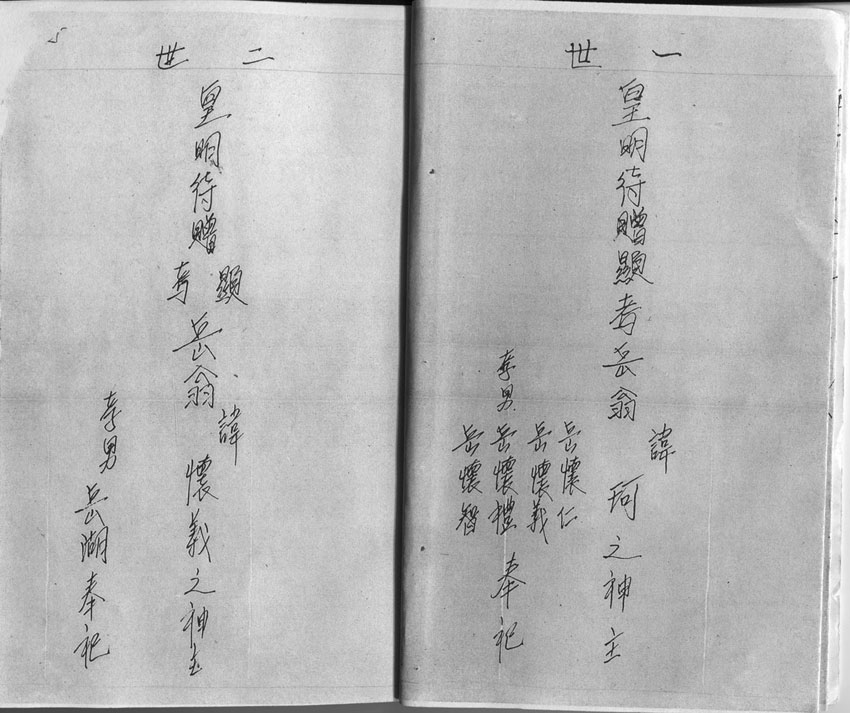 一世
皇明待贈顯考岳翁
諱
珂之神主
孝男
岳懷仁
岳懷義
岳懷禮
岳懷智
奉祀
二世
皇明待贈
顯
考
岳翁
諱
懷義之神主
孝男
岳湖奉祀